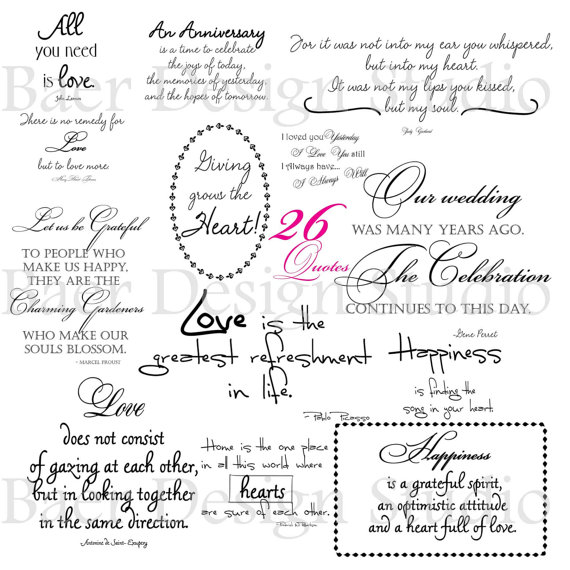 All
you need
is love.
John Lennon
An Anniversary
is a time to celebrate
the joys of today,
the memories of yesterday,
and the hopes of tomorrow.
For it was not into my ear you whispered,
but into my heart.
It was not my lips you kissed,
but my soul.
Judy Garland
There is no remedy for
Love
but to love more.
Giving
grows the
Heart!
I loved you Yesterday
I Love You still
I Always have...
I Always Will
26
Quotes
Our wedding
WAS MANY YEARS AGO.
The Celebration
CONTINUES TO THIS DAY.
Gene Perret
Let us be Grateful
TO PEOPLE WHO
MAKE US HAPPY,
THEY ARE THE
Charming Gardeners
WHO MAKE OUR
SOULS BLOSSOM.
- MARCEL PROUST
Love is the
greatest refreshment
in life.
Pablo Picasso
Happiness
is finding the
song in your heart.
Love
does not consist
of gazing at each other,
but in looking together
in the same direction.
Antoine de Saint-Exupery
Home is the one place
in all this world where
hearts
are sure of each other.
Happiness
is a grateful spirit,
an optimistic attitude
and a heart full of love.
Baer Design Studio
Baer Design Studio
Baer Design Studio